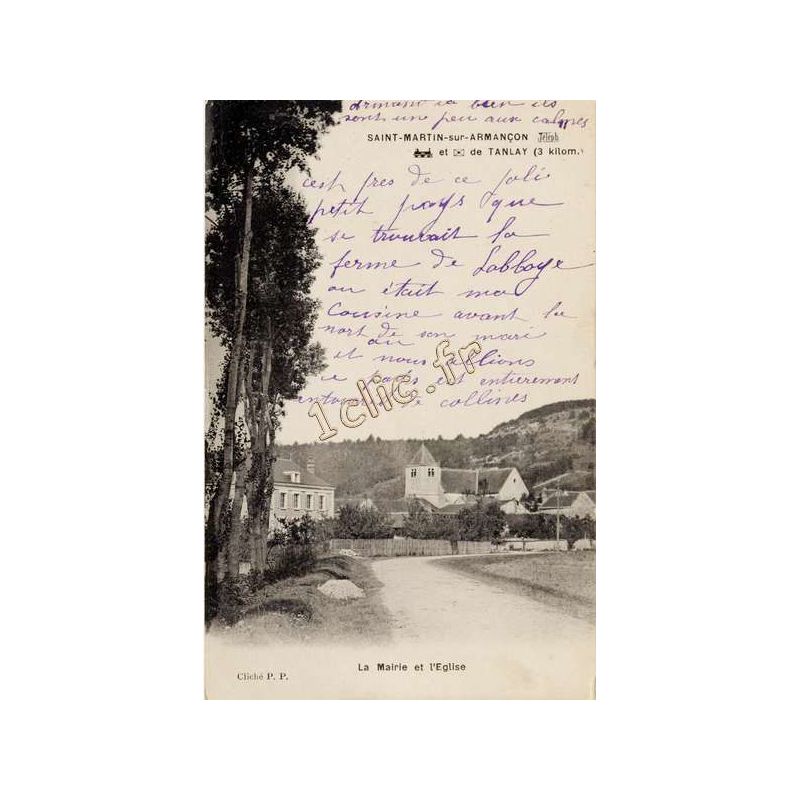 sont une peu aux calmes
SAINT-MARTIN-sur-ARMANÇON Téleph
et de TANLAY (3 kilom.)
c'est pres de ce jolie
petit pays que
se trouvait la
ferme de Labbaye
ou était ma
Cousine avant la
mort de son mari
ou
et nous allions
ce pays est entièrement
entouré de collines
1clic.fr
La Mairie et l'Eglise
Cliché P. P.